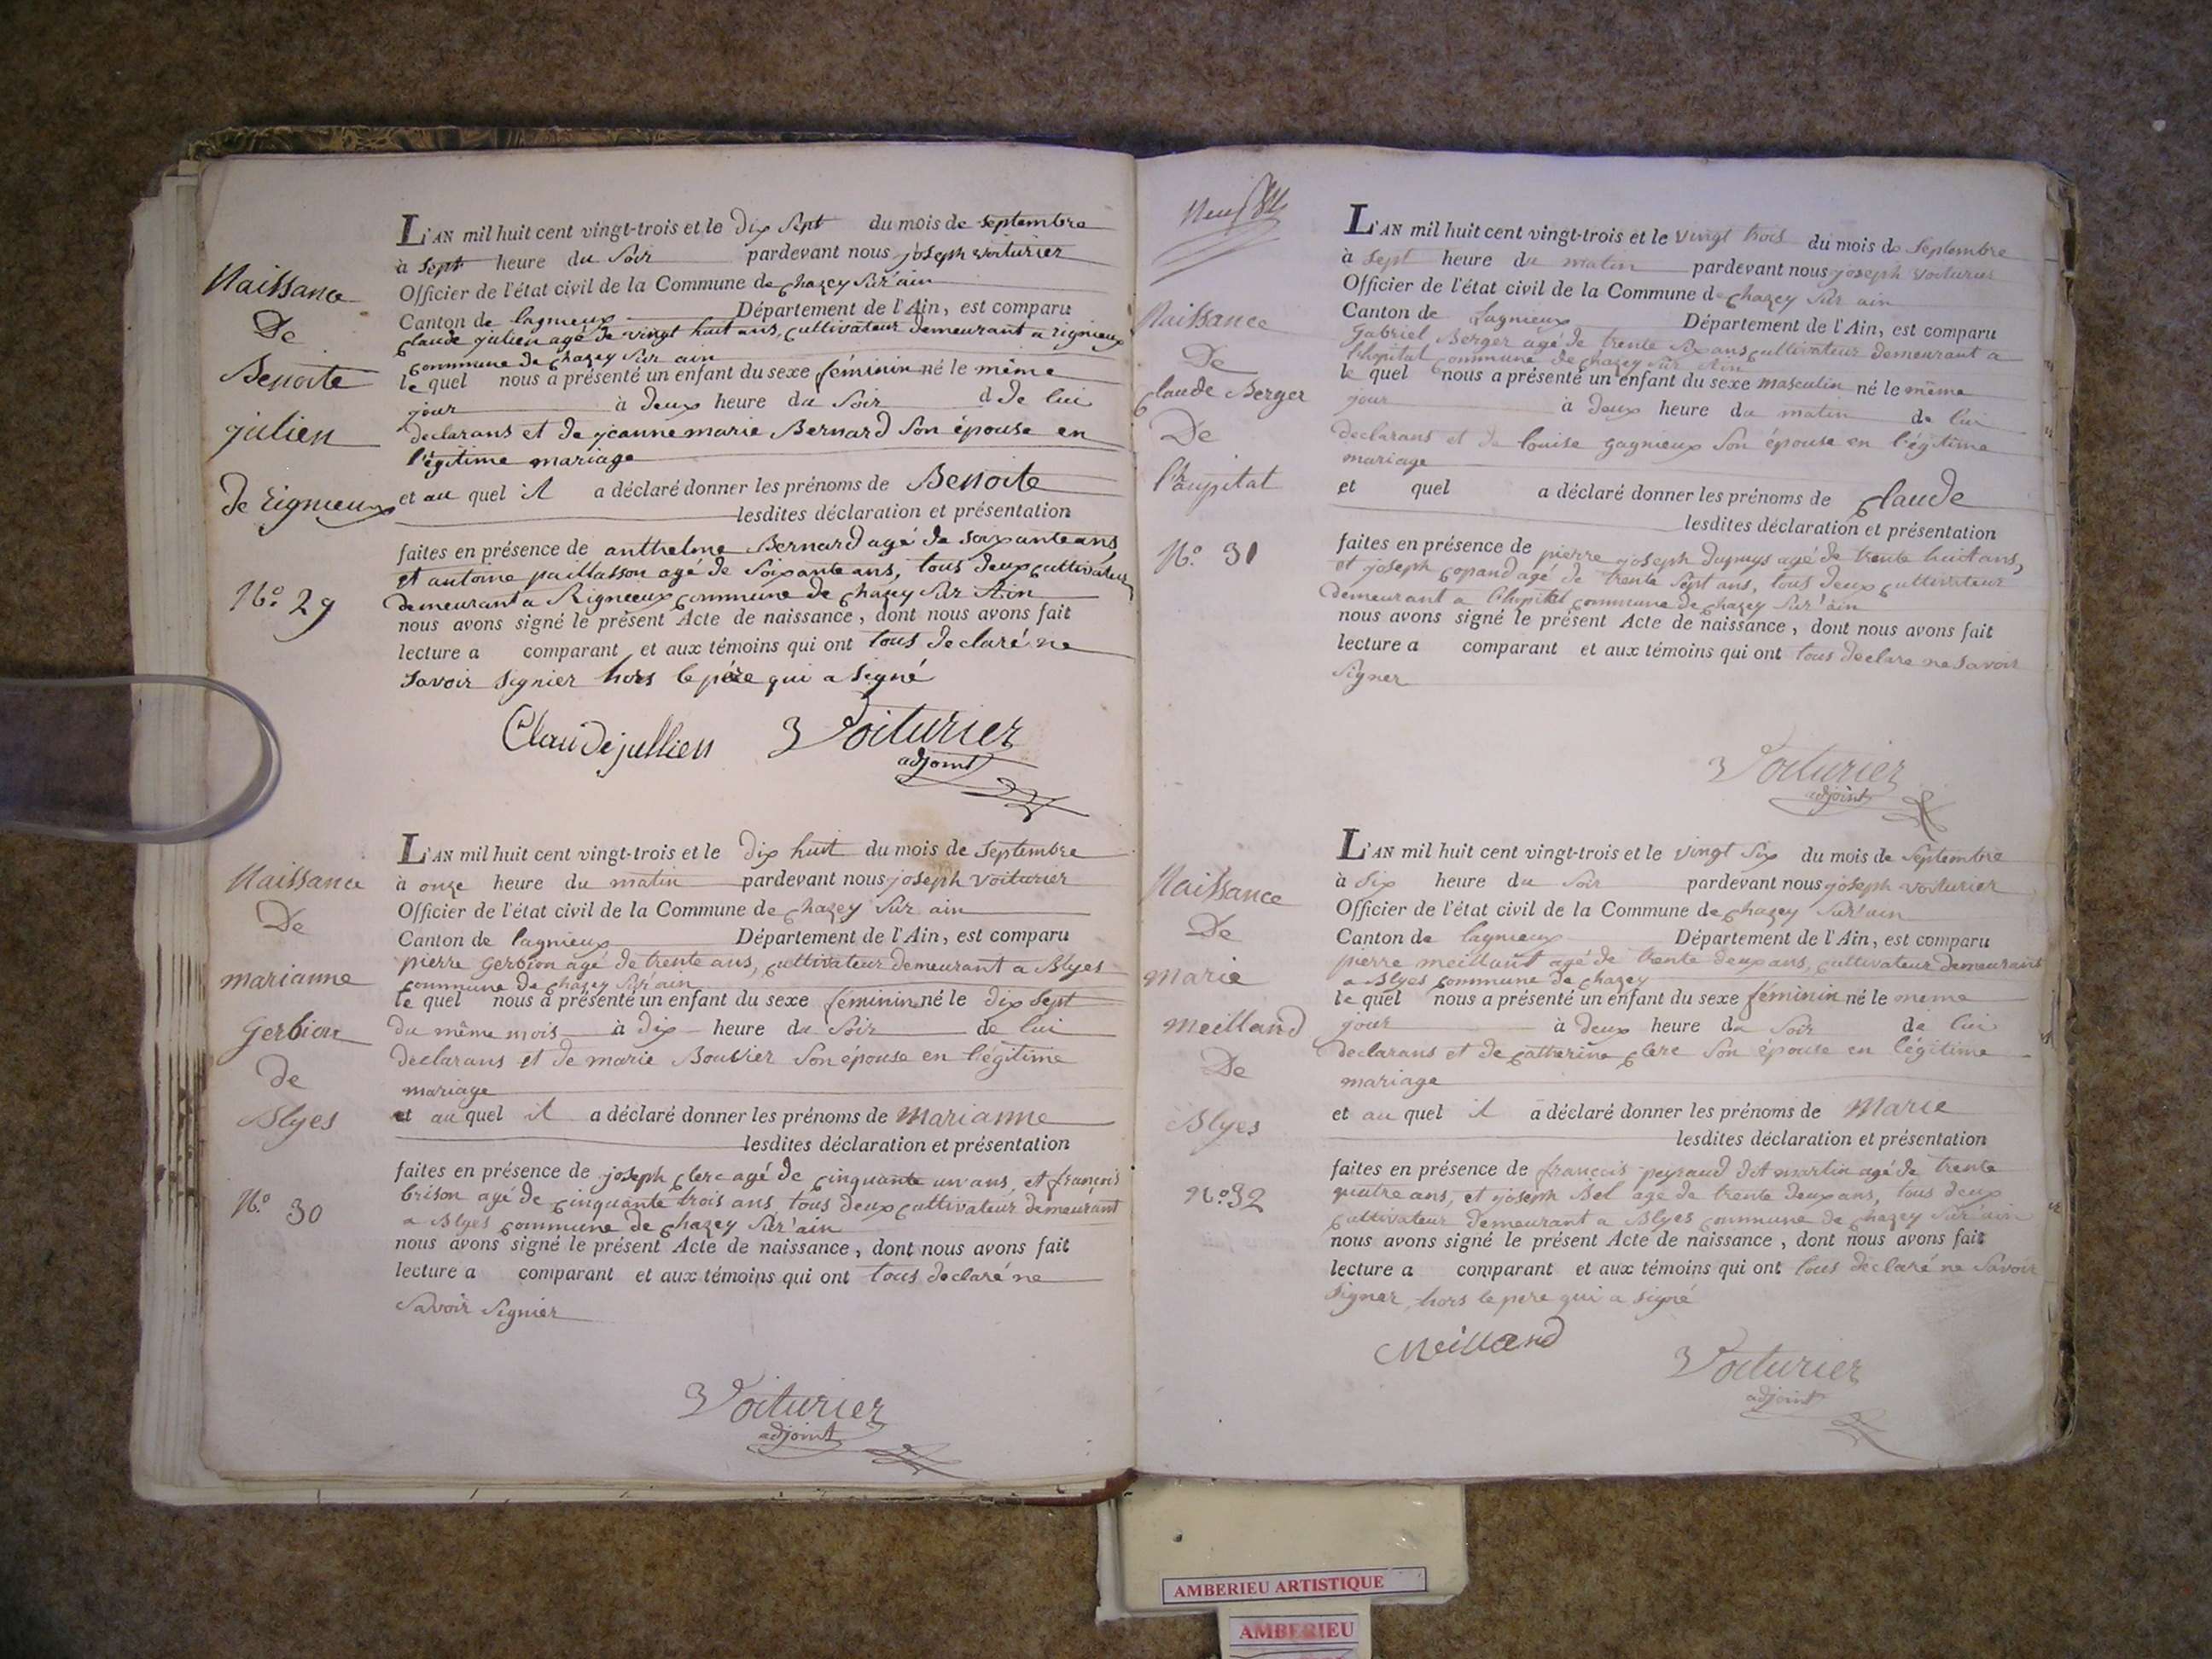 Naissance
De
Benoite
julien
de Rignieux
N.° 29
L'AN mil huit cent vingt-trois et le dix sept du mois de septembre
à sept heure du soir pardevant nous joseph voiturier
Officier de l'état civil de la Commune de chazey sur ain
Canton de lagnieux Département de l'Ain, est comparu
claude julien agé de vingt huit ans, cultivateur demeurant a rignieux
commune de chazey sur ain
le quel nous a présenté un enfant du sexe féminin né le même
jour à deux heure du soir d de lui
declarans et de jeanne marie Bernard son épouse en
légitime mariage
et au quel il a déclaré donner les prénoms de Benoite
lesdites déclaration et présentation
faites en présence de anthelme Bernard agé de soixante ans,
et antoine paillasson agé de soixante ans, tous deux cultivateur
demeurant a Rignieux commune de chazey sur Ain
nous avons signé le présent Acte de naissance, dont nous avons fait
lecture a comparant et aux témoins qui ont tous declaré ne
savoir signier hors le pére qui a signé
Claude jullien Voiturier
adjoint
Naissance
De
marianne
Gerbion
de
Blyes
N.° 30
L'AN mil huit cent vingt-trois et le dix huit du mois de septembre
à onze heure du matin pardevant nous joseph voiturier
Officier de l'état civil de la Commune de chazey sur ain
Canton de lagnieux Département de l'Ain, est comparu
pierre Gerbion agé de trente ans, cultivateur demeurant a Blyes
commune de chazey sur ain
le quel nous a présenté un enfant du sexe féminin né le dix sept
du même mois à dix heure du soir de lui
declarans et de marie Bouvier son épouse en légitime
mariage
et au quel il a déclaré donner les prénoms de marianne
lesdites déclaration et présentation
faites en présence de joseph clerc agé de cinquante un ans, et françois
brison agé de cinquante trois ans, tous deux cultivateur demeurant
a Blyes commune de chazey sur'ain
nous avons signé le présent Acte de naissance, dont nous avons fait
lecture a comparant et aux témoins qui ont tous declaré ne
savoir signier
Voiturier
adjoint
Neuf
Naissance
De
claude Berger
De
l'hopital
N.° 31
L'AN mil huit cent vingt-trois et le vingt trois du mois de septembre
à sept heure du matin pardevant nous joseph voiturier
Officier de l'état civil de la Commune de chazey sur ain
Canton de Lagnieux Département de l'Ain, est comparu
Gabriel Berger agé de trente six ans cultivateur demeurant a
l'hopital commune de chazey sur Ain
le quel nous a présenté un enfant du sexe masculin né le même
jour à deux heure du matin de lui
declarans et de louise gagnieux son épouse en légitime
mariage
et quel a déclaré donner les prénoms de claude
lesdites déclaration et présentation
faites en présence de pierre joseph dupuys agé de trente huit ans,
et joseph copand agé de trente sept ans, tous deux cultivateur
demeurant a l'hopital commune de chazey sur'ain
nous avons signé le présent Acte de naissance, dont nous avons fait
lecture a comparant et aux témoins qui ont tous declare ne savoir
signer
Voiturier
adjoint
Naissance
De
marie
meilland
De
Blyes
N.° 32
L'AN mil huit cent vingt-trois et le vingt six du mois de septembre
à six heure du soir pardevant nous joseph voiturier
Officier de l'état civil de la Commune de chazey sur'ain
Canton de lagnieux Département de l'Ain, est comparu
pierre meillant agé de trente deux ans, cultivateur demeurant
a Blyes commune de chazey
le quel nous a présenté un enfant du sexe féminin né le meme
jour à deux heure du soir de lui
declarans et de catherine clerc son épouse en légitime
mariage
et au quel il a déclaré donner les prénoms de Marie
lesdites déclaration et présentation
faites en présence de françois peyraud dit martin agé de trente
quatre ans, et joseph Bel agé de trente deux ans, tous deux
cultivateur demeurant a Blyes commune de chazey sur'ain
nous avons signé le présent Acte de naissance, dont nous avons fait
lecture a comparant et aux témoins qui ont tous déclaré ne savoir
signer, hors le pere qui a signé
Meilland Voiturier
adjoint
AMBERIEU ARTISTIQUE
AMBERIEU